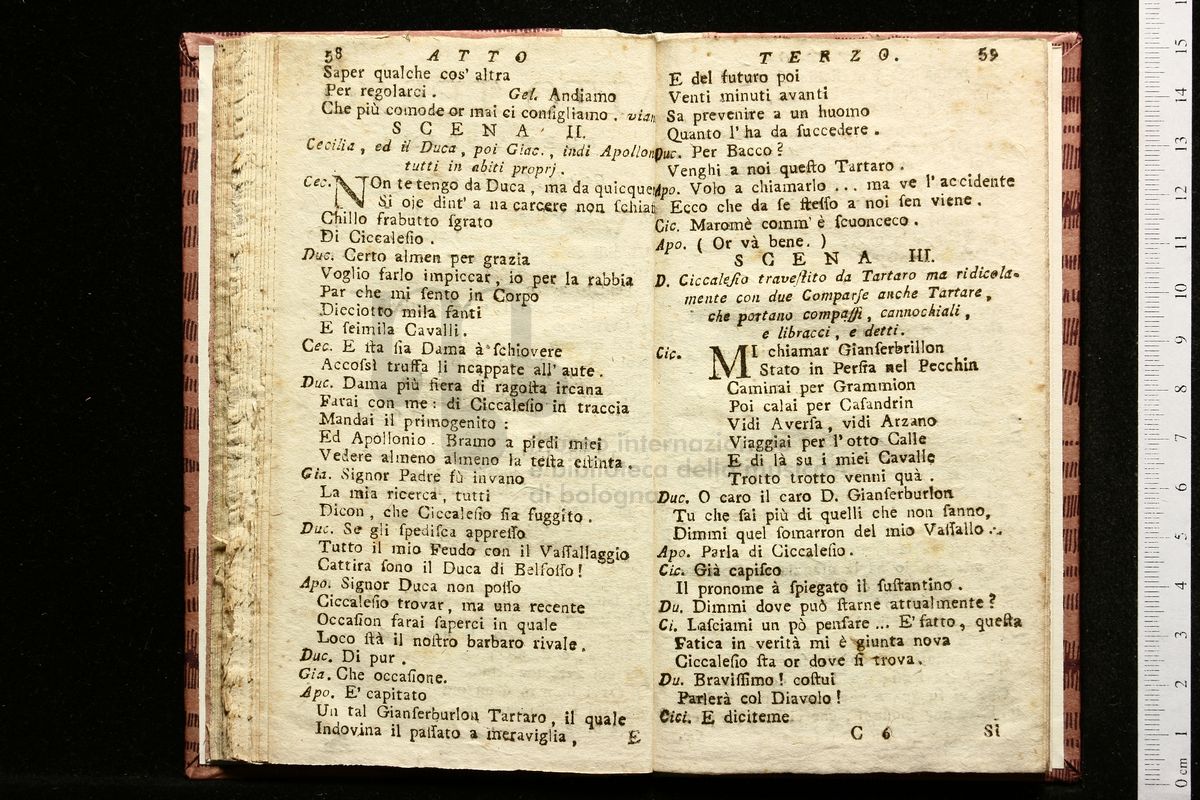 58 ATTO
Saper qualche cos' altra
Per regolarci. Gel. Andiamo
Che più comode or mai ci conſigliamo. vian
SCENA II.
Cecilia, ed il Duca, poi Giac., indi Apollon
tutti in abiti proprj.
Cec. NOn te tengo da Duca, ma da quicque
Si oje dint' a na carcere non ſchiat
Chillo frabutto ſgrato
Di Ciccaleſio.
Duc. Certo almen per grazia
Voglio farlo impiccar, io per la rabbia
Par che mi ſento in Corpo
Dicciotto mila fanti
E ſeimila Cavalli.
Cec. E ſta ſia Dama à ſchiovere
Accoſsì truffa li ncappate all' aute.
Duc. Dama più fiera di ragoſta ircana
Farai con me: di Ciccaleſio in traccia
Mandai il primogenito:
Ed Apollonio. Bramo a piedi miei
Vedere almeno almeno la teſta eſtinta.
Gia. Signor Padre fù invano
La mia ricerca, tutti
Dicon, che Ciccaleſio ſia fuggito.
Duc. Se gli ſpediſca appreſſo
Tutto il mio Feudo con il Vaſſallaggio
Cattira ſono il Duca di Belfoſſo!
Apo. Signor Duca non poſſo
Ciccaleſio trovar, ma una recente
Occaſion farai ſaperci in quale
Loco ſtà il noſtro barbaro rivale.
Duc. Di pur.
Gia. Che occaſione.
Apo. E' capitato
Un tal Gianferburlon Tartaro, il quale
Indovina il paſſato a meraviglia,
E
TERZO. 59
E del futuro poi
Venti minuti avanti
Sa prevenire a un huomo
Quanto l' ha da ſuccedere.
Duc. Per Bacco?
Venghi a noi queſto Tartaro.
Apo. Volo a chiamarlo ... ma ve l' accidente
Ecco che da ſe ſteſſo a noi ſen viene.
Cic. Maromè comm' è ſcuonceco.
Apo. ( Or và bene. )
SCENA III.
D. Ciccaleſio traveſtito da Tartaro ma ridicola-
mente con due Comparſe anche Tartare,
che portano compaſſi, cannochiali,
e libracci, e detti.
Cic. MI chiamar Gianferbrillon
Stato in Perſia nel Pecchin
Caminai per Grammion
Poi calai per Caſandrin
Vidi Averſa, vidi Arzano
Viaggiai per l' otto Calle
E di là su i miei Cavalle
Trotto trotto venni quà.
Duc. O caro il caro D. Gianferburlon
Tu che ſai più di quelli che non ſanno,
Dimmi quel ſomarron del mio Vaſſallo ...
Apo. Parla di Ciccaleſio.
Cic. Già capiſco
Il pronome à ſpiegato il ſuſtantino.
Du. Dimmi dove può ſtarne attualmente?
Ci. Laſciami un pò penſare ... E' fatto, queſta
Fatica in verità mi è giunta nova
Ciccaleſio ſta or dove ſi trova.
Du. Braviſſimo! coſtui
Parlerà col Diavolo!
Cici. E diciteme
C 6 Si